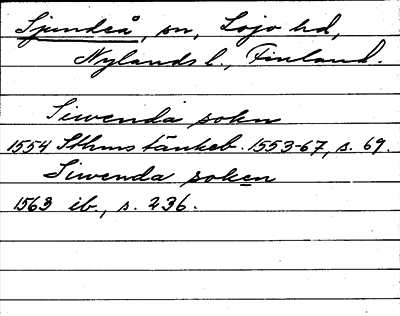 Sjundeå, sn, Lojo hd,
Nylands l., Finland.
Siwenda sokn
1554 Sthms tänkeb. 1553-67, s. 69.
Siwenda soken
1563 ib., s. 236.